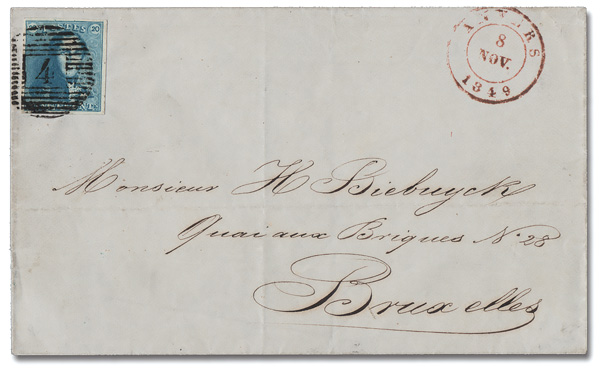 20
4
ANVERS
8
NOV.
1849
Monsieur H Biebuyck
Quai aux Briques N° 28
Bruxelles